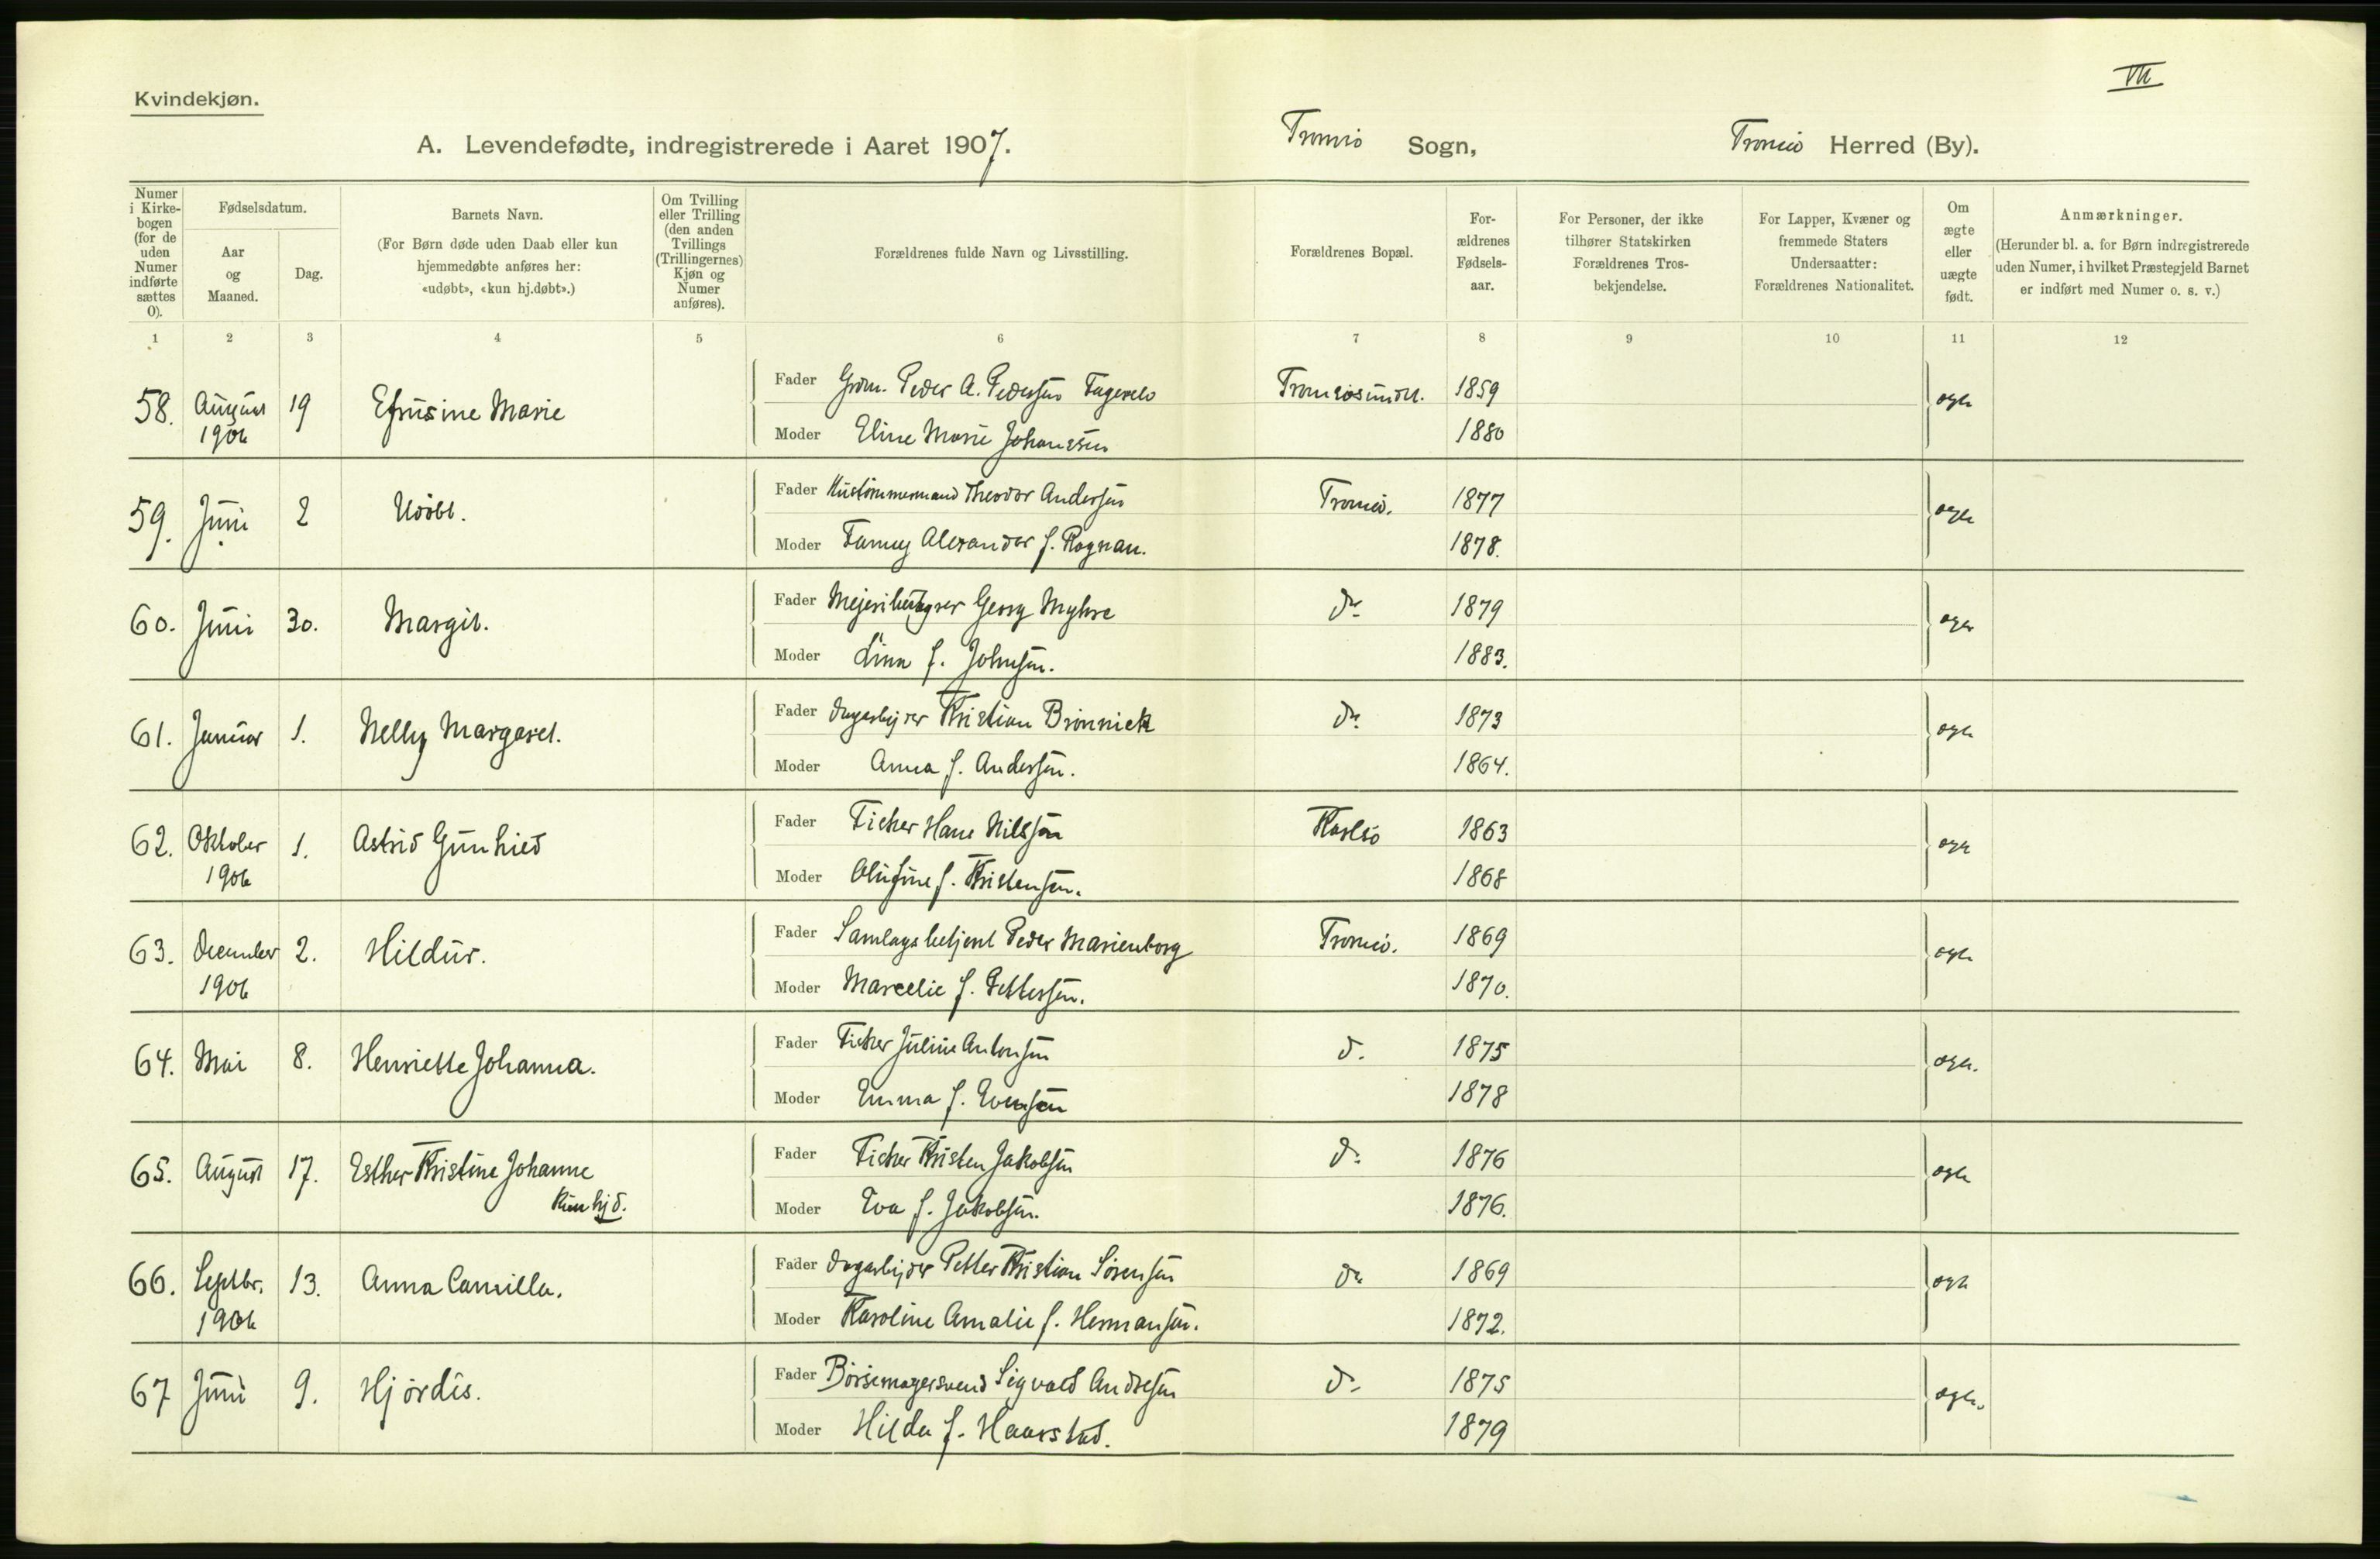 VII
Kvindekjøn.
A. Levendefødte, indregistrerede i Aaret 1907. Tromsø Sogn, Tromsø Herred (By).
Numer i Kirkebogen (for de uden Numer indførte sættes 0).
Fødselsdatum.
Aar og Maaned.
Dag.
Barnets Navn.
(For Børn døde uden Daab eller kun hjemmedøbte anføres her: «udøbt», «kun hj.døbt».)
Om Tvilling eller Trilling (den anden Tvillings (Trillingernes) Kjøn og Numer anføres).
Forældrenes fulde Navn og Livsstilling.
Forældrenes Bopæl.
Forældrenes Fødselsaar.
For Personer, der ikke tilhører Statskirken Forældrenes Trosbekjendelse.
For Lapper, Kvæner og fremmede Staters Undersaatter: Forældrenes Nationalitet.
Om ægte eller uægte født.
Anmærkninger.
(Herunder bl. a. for Børn indregistrerede uden Numer, i hvilket Præstegjeld Barnet er indført med Numer o. s. v.)
1 2 3 4 5 6 7 8 9 10 11 12
58. August 1906 19 Efrusine Marie Fader Grdm. Peder A. Pedersen Tromsøsundet. 1859 ægte
Moder Eline Marie Johanssen 1880
59. Juni 2 Udøbt. Fader Hustømmermand Theodor Andersen Tromsø. 1877 ægte
Moder Fanny Alexander f. Rognan. 1878.
60. Juni 30. Margit. Fader Mejeribestyrer Georg Myhre do 1879 ægte
Moder Lina f. Johnsen. 1883.
61. Januar 1. Nelly Margaret. Fader Dagarbejder Kristian Brønnick do 1873 ægte
Moder Anna f. Andersen. 1864.
62. Oktober 1906 1. Astrid Gunhild Fader Fisker Hans Nilssen Karlsø 1863 ægte
Moder Olufine f. Kristensen. 1868
63. December 1906 2. Hildur. Fader Samlagsbetjent Peder Marienborg Tromsø. 1869 ægte
Moder Marcelie f. Pettersen. 1870.
64. Mai 8. Henriette Johanna. Fader Fisker Julius Antonsen d. 1875 ægte.
Moder Emma f. Evensen 1878
65. August 17. Esther Kristine Johanne Fader Fisker Kristen Jakobsen d. 1876 ægte
kun hjd. Moder Eva f. Jakobsen. 1876.
66. Septbr. 1906 13. Anna Camilla. Fader Dagarbejder Petter Kristian Sørensen do 1869 ægte
Moder Karoline Amalie f. Hermansen. 1872.
67 Juni 9. Hjørdis. Fader Børsemagersvend Sigvald Andresen d. 1875 ægte.
Moder Hilda f. Haarstad. 1879